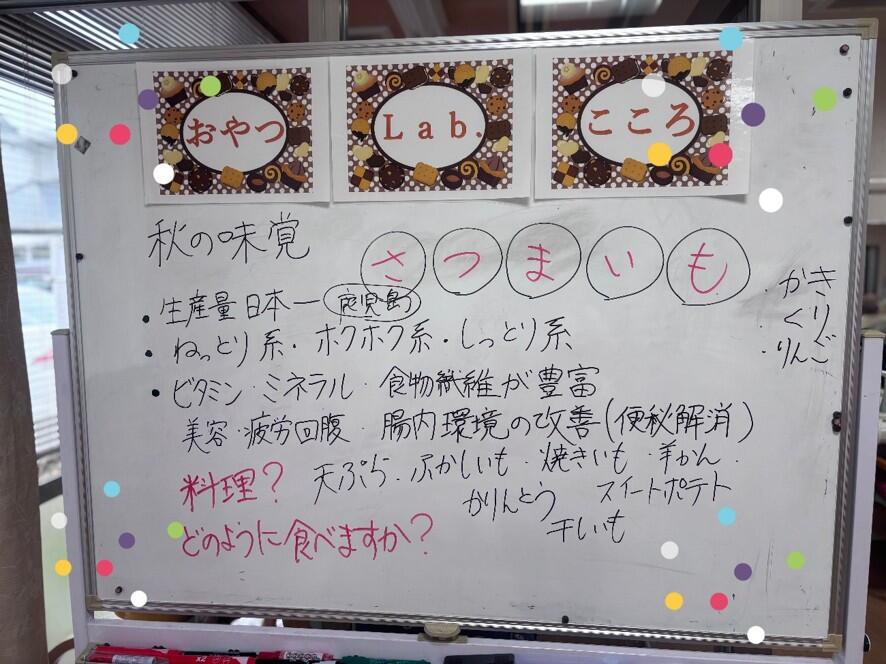 おやつ Lab. こころ
秋の味覚 さつまいも
・かき
・くり
・りんご
・生産量日本一 鹿児島
・ねっとり系・ホクホク系・しっとり系
・ビタミン・ミネラル・食物繊維が豊富
美容・疲労回腹・腸内環境の改善(便秘解消)
料理? 天ぷら・ふかしいも・焼きいも・羊かん・
かりんとう スイートポテト
干いも
どのように食べますか?